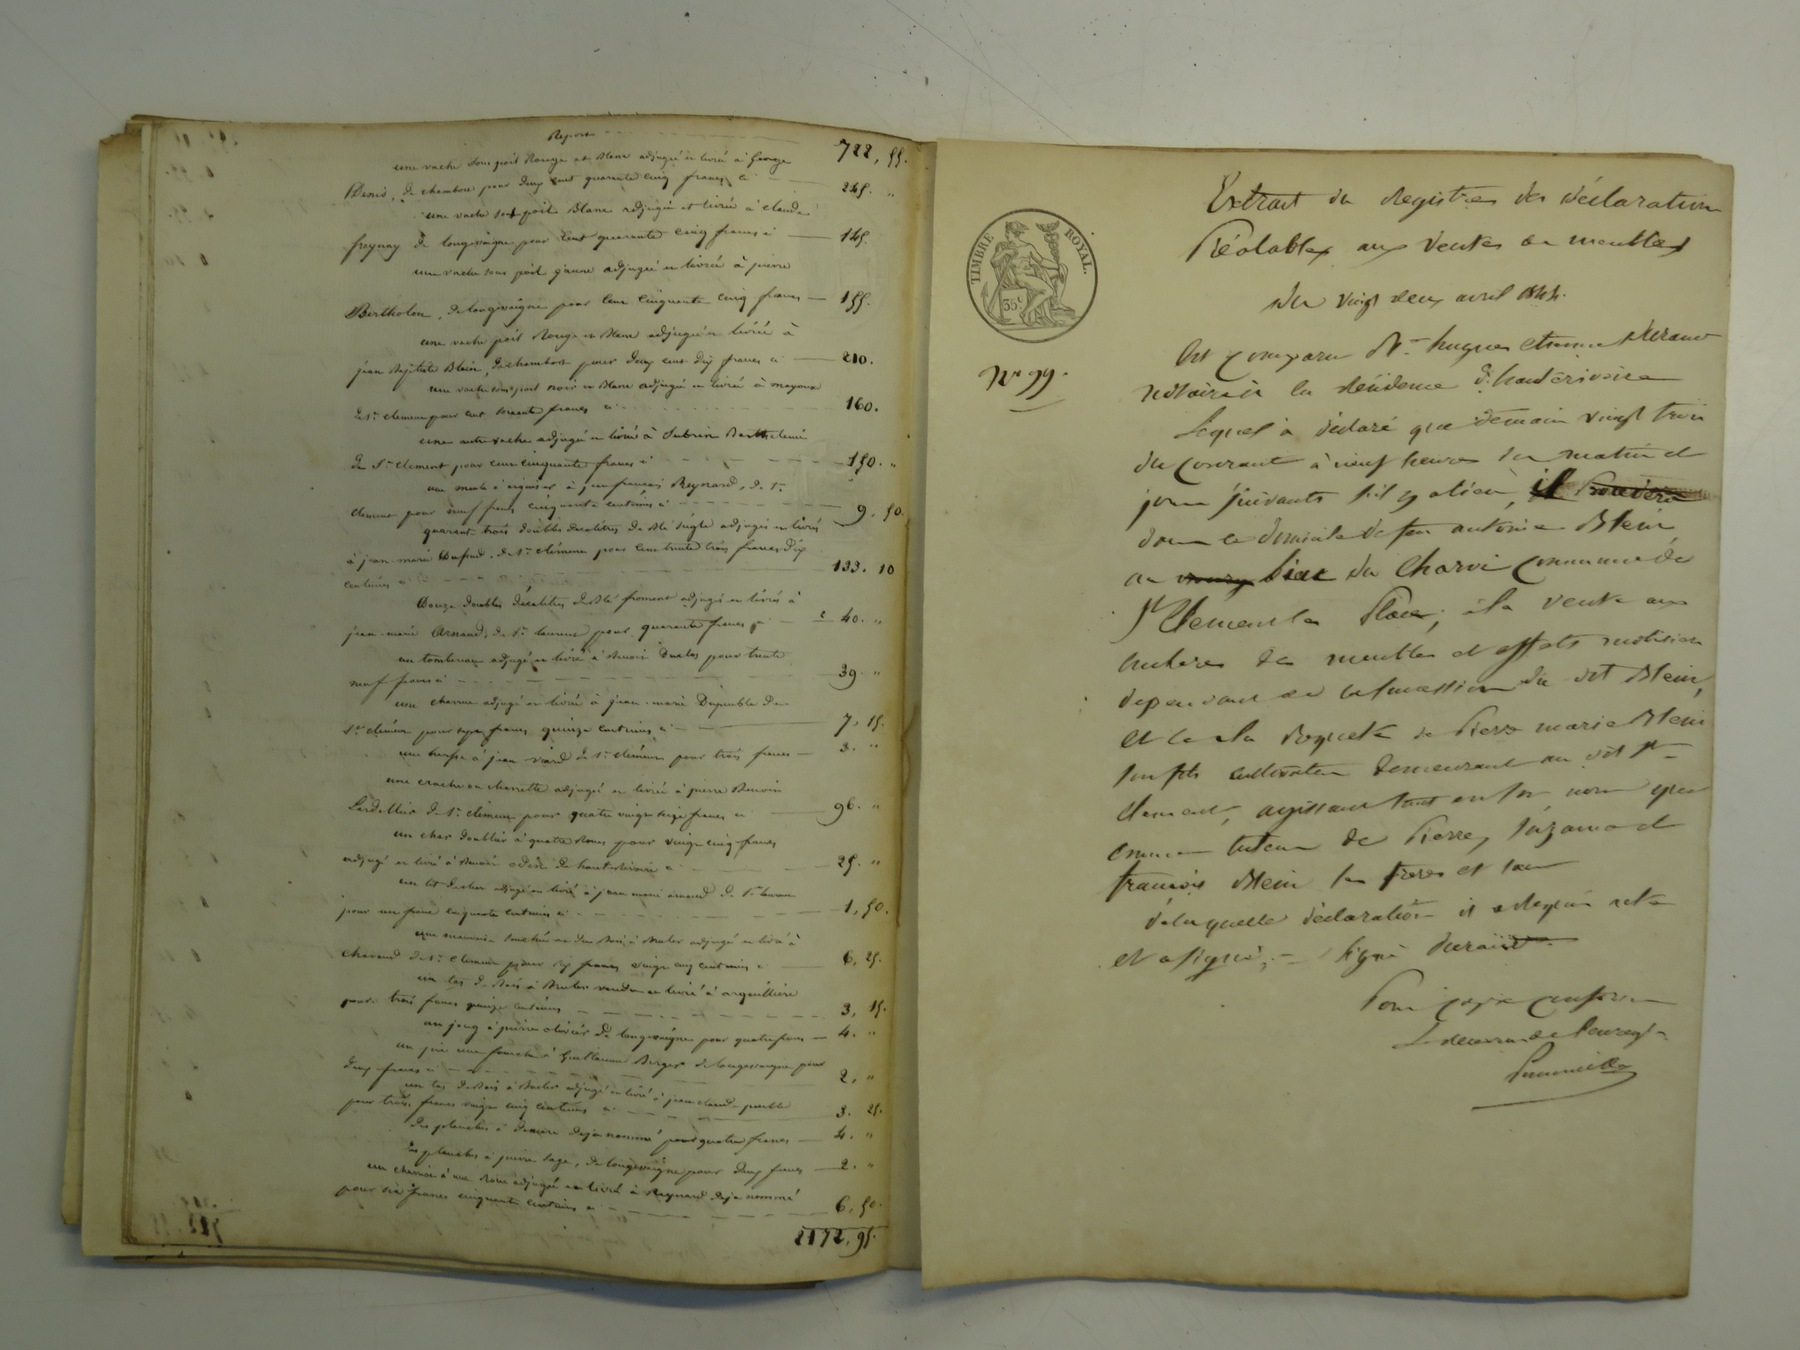 Report
722, 55.
une vache sous poil Rouge et Blanc adjugée et livrée à George
Denis, de chambost pour deux cent quarante cinq francs ci 245. "
une vache sous poil Blanc adjugée et livrée à claude
freynay de longessaigne pour Cent quarante cinq francs ci 145.
une vache sous poil jaune adjugée et livrée à pierre
Bertholon, de longessaigne pour Cent Cinquante Cinq francs 155.
une vache poil Rouge et Blanc adjugée et livrée à
jean Baptiste Blein, de chambost pour deux cent dix francs ci 210.
une vache sous poil noir et Blanc adjugée et livrée à mayoud
de St clément pour cent soixante francs ci 160.
une autre vache adjugée et livrée à Subrin Barthelemi
de St clement pour cent cinquante francs ci 150. "
une meule à aiguiser à jean françois Reynard, de St
clement pour neuf francs cinquante centimes ci 9, 50.
quarante trois doubles décalitres de Blé seigle adjugés et livrés
à jean marie Dufud, de St clément pour cent trente trois francs dix
centimes ci 133. 10
Douze doubles décalitres de Blé froment adjugés et livrés à
jean-marie Arnaud, de St laurent pour quarante francs ci 40. "
un tombereau adjugé et livré à Benoit Duclos pour trente
neuf francs ci 39. "
une charrue adjugée et livrée à jean-marie Dupeuble de
St clément pour sept francs quinze centimes ci 7, 15.
une à jean viard de St clément pour trois francs 3. "
une charrette adjugée et livrée à pierre Benoit
de St clément pour quatre vingt seize francs ci 96. "
un char à quatre Roues pour vingt cinq francs
adjugé et livré à Benoit de hauterivoire ci 25. "
un lot adjugé et livré à jean marie arnaud de St laurent
pour un franc cinquante centimes ci 1, 50.
une de Bois à Bruler adjugé et livré à
de St Clément pour six francs vingt cinq centimes ci 6, 25.
un tas de Bois à Bruler vendu et livré à
pour trois francs quinze centimes 3, 15.
un joug à pierre de longessaigne pour quatre francs 4. "
un une fourche à Guillaume Berger de longessaigne pour
deux francs ci 2, "
un tas de Bois à Bruler adjugé et livré à jean claude
pour trois francs vingt cinq centimes ci 3. 25.
des planches à deja nommé pour quatre francs 4. "
des planches à pierre Sage, de longessaigne pour deux francs 2. "
un à une Roue adjugé et livré à Reynard deja nommé
pour six francs cinquante centimes ci 6, 50.
2172, 95.
TIMBRE ROYAL.
35c
No 99.
Extrait du Registre des déclarations
Préalables aux ventes de meubles
du vingt deux avril 1844.
Est comparu Me hugues etienne Durand
notaire à la Résidence d'hauterivoire
Lequel a déclaré que demain vingt trois
du courant à neuf heures du matin et
jours suivants s'il y a lieu, il
dans le domicile de feu antoine Blein
au lieu du Charvi commune de
St Clement les Places, à la vente aux
enchères des meubles et effets mobiliers
dependant de la succession du dit Blein,
et ce à la Requete de Pierre marie Blein
son fils cultivateur demeurant au dit St
Clement, agissant tant en son nom que
comme tuteur de Pierre, Suzanne et
françois Blein ses freres et soeur
de laquelle déclaration il a requis acte
et a signé, signé Durand
Pour copie conforme
Le receveur de l'enregt